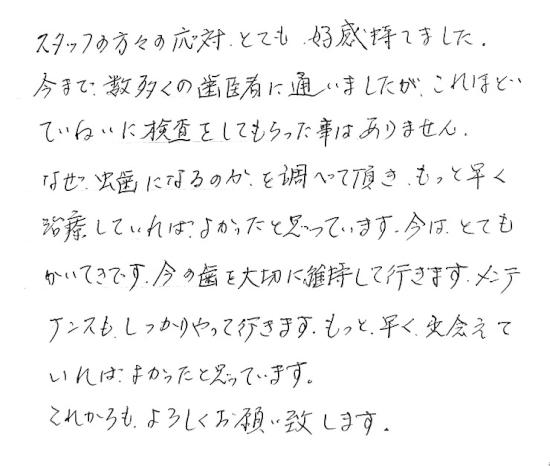 スタッフの方々の応対、とても、好感持てました。
今まで、数多くの歯医者に通いましたが、これほどい
ていねいに検査をしてもらった事はありません。
なぜ、虫歯になるのか、を調べて頂き、もっと早く
治療していれば、よかったと思っています。今は、とても
かいてきです。今の歯を大切に維持して行きます。メンテ
ナンスも、しっかりやって行きます。もっと、早く、出会えて
いれば、よかったと思っています。
これからも、よろしくお願い致します。